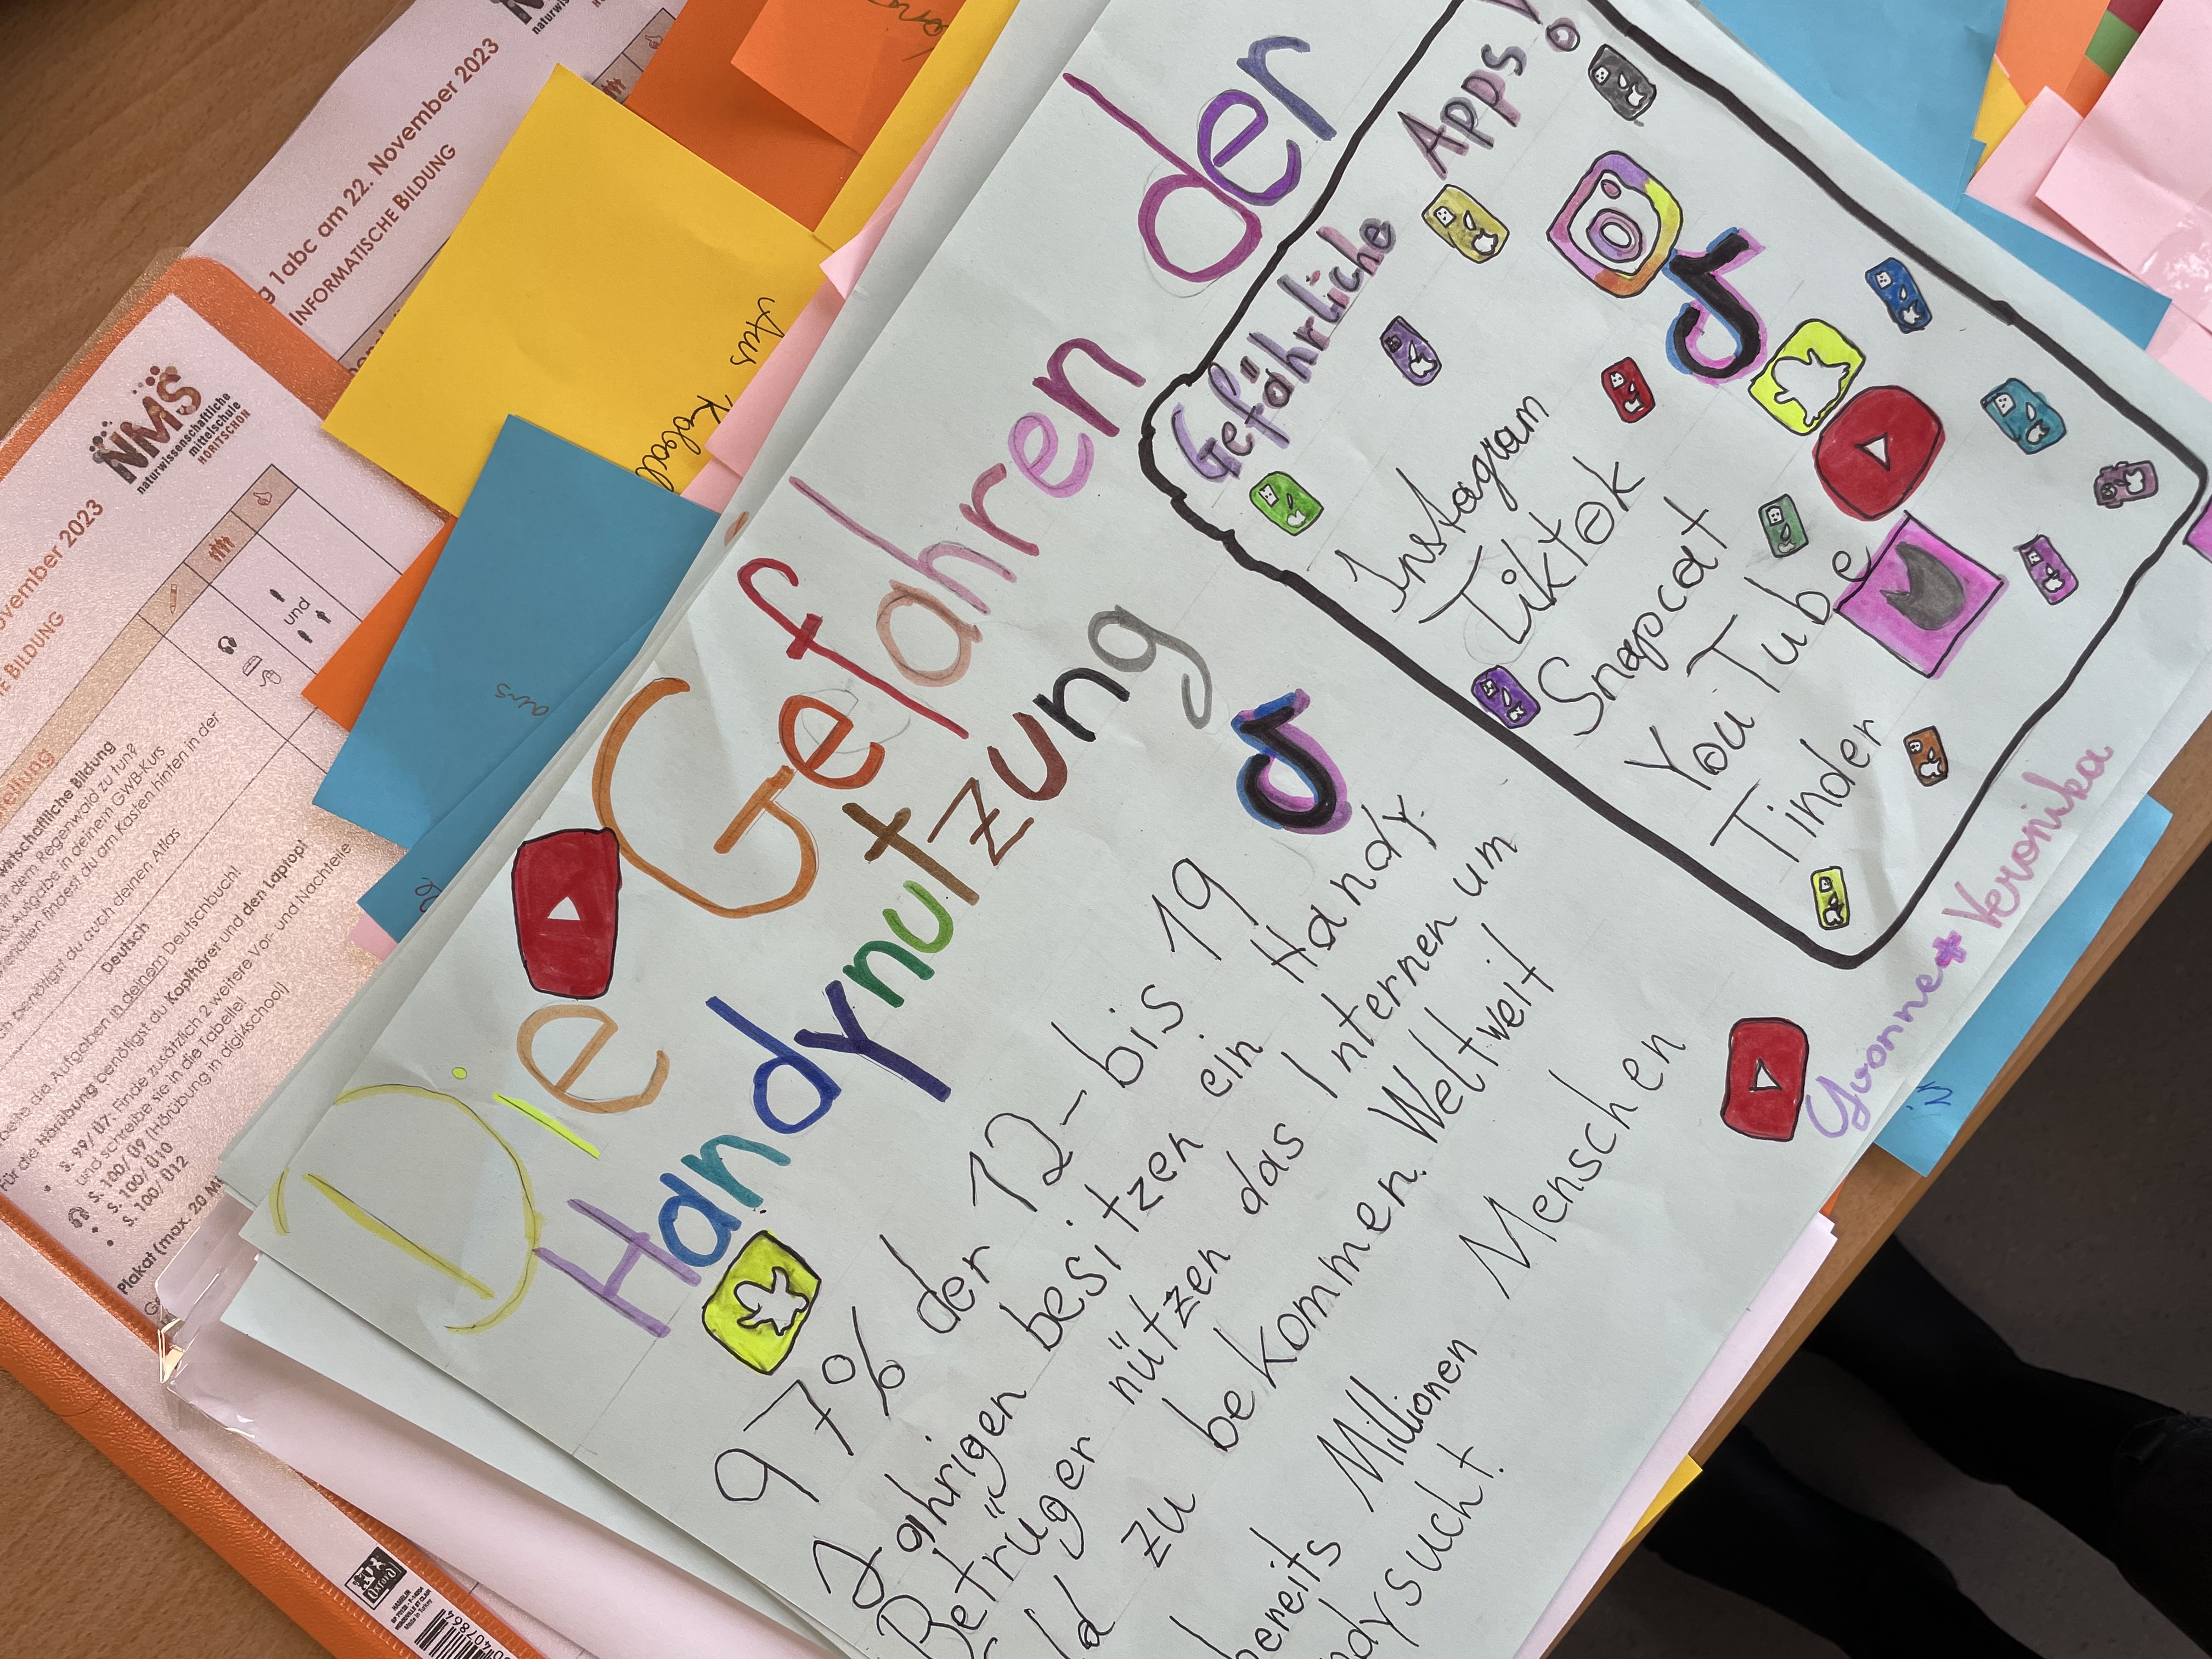 Die Gefahren der
Handynutzung
97% der 12-bis 19
Jährigen besitzen ein Handy.
Betrüger nützen das Internen um
zu bekommen. Weltweit
bereits Millionen Menschen
Gefährliche Apps!
Instagram
Tiktok
Snapcat
YouTube
Tinder
Yvonne + Veronika
1abc am 22. November 2023
INFORMATISCHE BILDUNG
NMS
naturwissenschaftliche
mittelschule
HORITSCHON
November 2023
BILDUNG
und
wirtschaftliche Bildung
mit dem Regenwald zu tun?
Aufgabe in deinem GWB-Kurs
findest du am Kasten hinten in der
benötigst du auch deinen Atlas
Deutsch
die Aufgaben in deinem Deutschbuch!
Für die Hörübung benötigst du Kopfhörer und den Laptop!
S. 99/ Ü7: Finde zusätzlich 2 weitere Vor- und Nachteile
und schreibe sie in die Tabelle!
S. 100/ Ü9 (Hörübung in digi4school)
S. 100/ Ü10
S. 100/ Ü12
Plakat (max. 20
Aus
aus
Oxford
Made in Turkey